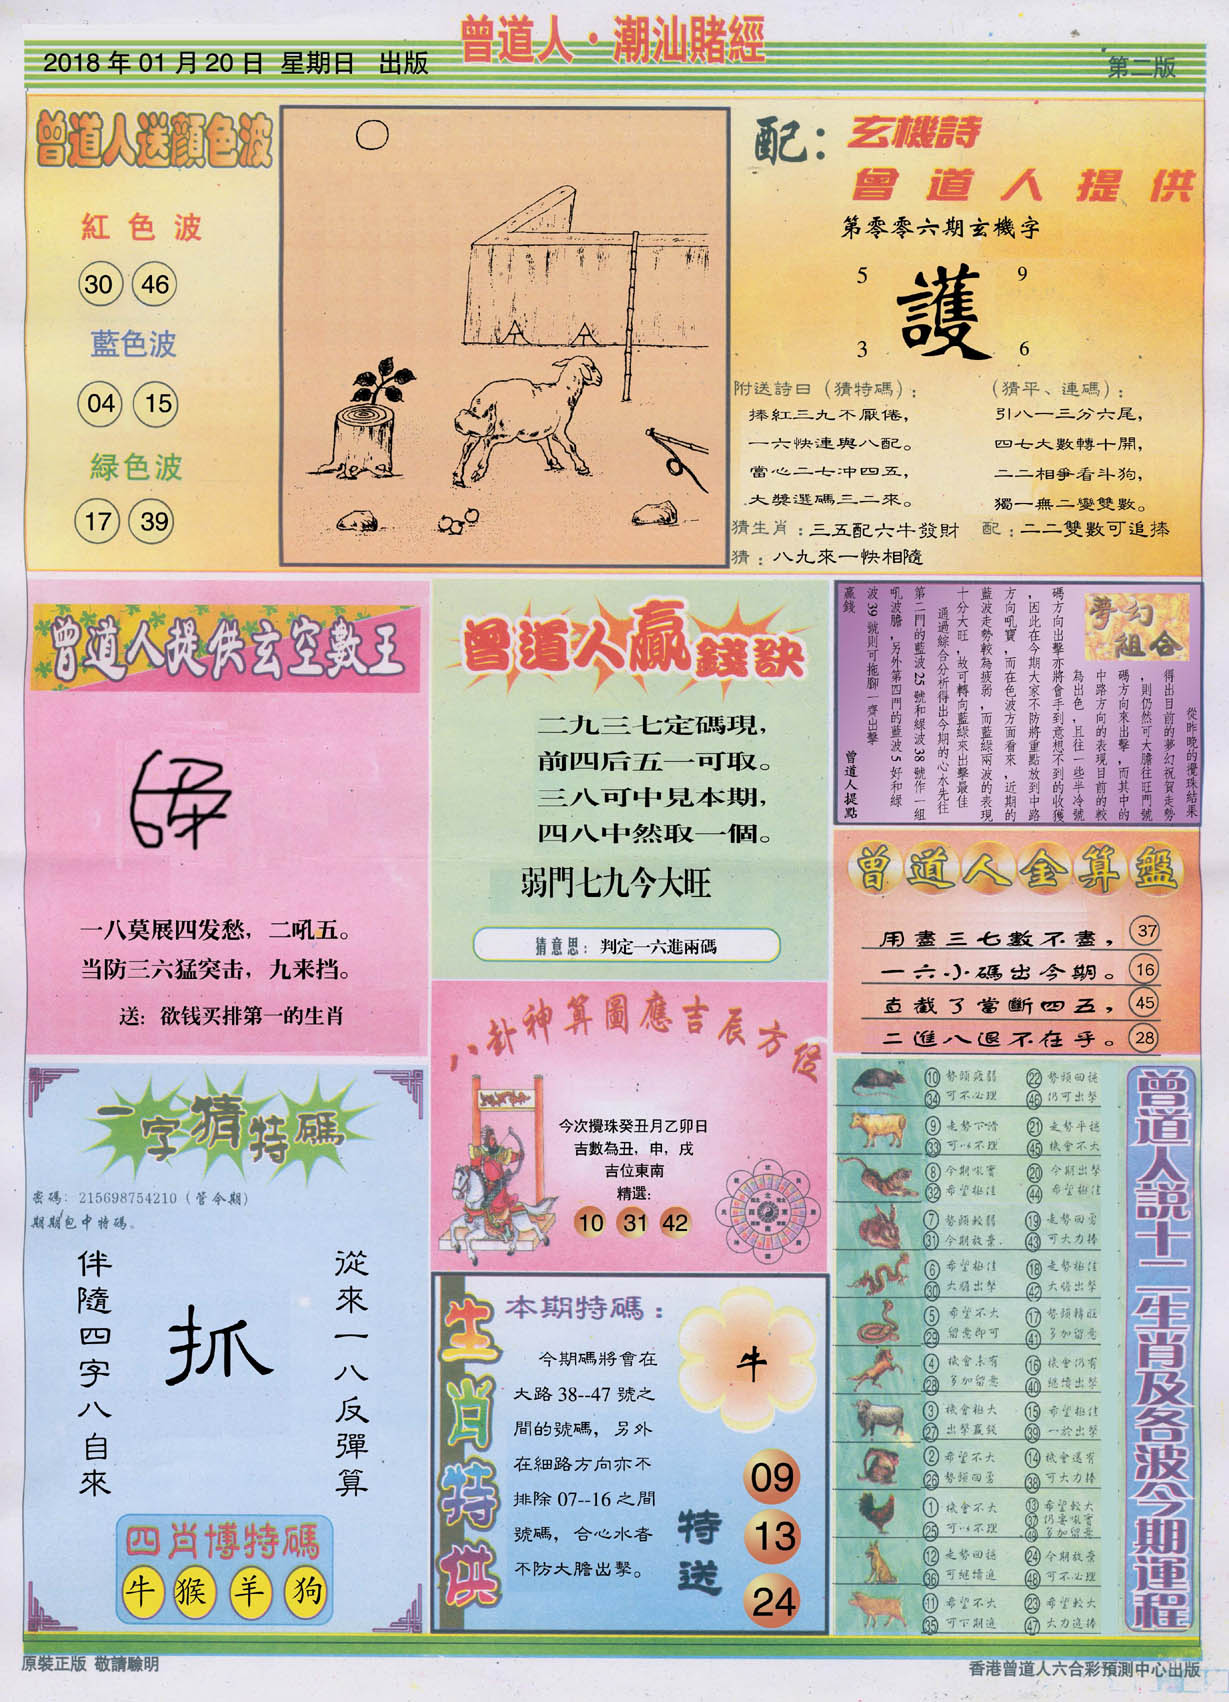 曾道人·潮汕賭經
2018年01月20日 星期日 出版
第二版
曾道人送顏色波
紅色波
30 46
藍色波
04 15
緑色波
17 39
配：玄機詩
曾道人提供
第零零六期玄機字
5 9
護
3 6
附送詩曰（猜特碼）：
捧紅三九不厭倦，
一六快連與八配。
當心二七冲四五，
大獎選碼三二來。
（猜平、連碼）：
引八一三分六尾，
四七大數轉十開，
二二相爭看斗狗，
獨一無二變雙數。
猜生肖：三五配六牛發財
配：二二雙數可追捧
猜：八九來一快相隨
曾道人提供玄空數王
一八莫展四发愁，二吼五。
当防三六猛突击，九来挡。
送：欲钱买排第一的生肖
曾道人贏錢訣
二九三七定碼現，
前四后五一可取。
三八可中見本期，
四八中然取一個。
弱門七九今大旺
猜意思：判定一六進兩碼
夢幻
組合
從昨晚的攪珠結果
得出目前的夢幻祝賀走勢
，則仍然可大膽往旺門號
碼方向來出擊，而其中的
中路方向的表現目前的較
為出色，且往一些半冷號
碼方向出擊亦將會手到意想不到的收獲
，因此在今期大家不防將重點放到中路
方向吼寶，而在色波方面看來，近期的
藍波走勢較為疲弱，而藍綠兩波的表現
十分大旺，故可轉向藍綠來出擊最佳
通過綜合分析得出今期的心水先往
第二門的藍波25號和綠波38號作一組
吼波膽，另外第四門的藍波5好和綠
波39號則可拖腳一齊出擊
贏錢
曾道人提點
曾道人金算盤
用盡三七數不盡，37
一六小碼出今期。16
直截了當斷四五，45
二進八退不在乎。28
八卦神算圖應吉辰方位
今次攪珠癸丑月乙卯日
吉數為丑，申，戌
吉位東南
精選：
10 31 42
一字猜特碼
密碼：215698754210（管令期）
期期包中特碼。
從來一八反彈算
抓
伴隨四字八自來
四肖博特碼
牛 猴 羊 狗
生肖特供
本期特碼：
今期碼將會在
大路38--47號之
間的號碼，另外
在細路方向亦不
排除07--16之間
號碼，合心水者
不防大膽出擊。
牛
特送
09
13
24
曾道人說十二生肖及各波今期運程
10 勢頭疲弱 22 勢頭回穩
34 可不必理 46 仍可出擊
9 走勢下滑 21 走勢平穩
33 可以不理 45 機會不大
8 今期吼寶 20 今期出擊
32 希望極佳 44 希望極佳
7 勢頭較弱 19 走勢回勇
31 今期放棄 43 可大力捧
6 希望極佳 18 走勢極佳
30 大膽出擊 42 大膽出擊
5 希望不大 17 勢頭轉旺
29 留意即可 41 多加留意
4 機會未有 16 機會仍有
28 多加留意 40 繼續出擊
3 機會極大 15 希望極佳
27 出擊贏錢 39 一於出擊
2 希望不大 14 機會還有
26 勢頭回勇 38 可大力捧
1 機會不大 13 希望較大
25 可以不理 37 仍要吼實
49 多加留意
12 走勢回穩 24 今期放棄
36 可繼續追 48 可不必理
11 希望不大 23 希望較大
35 可下期追 47 大力追捧
原裝正版 敬請驗明
香港曾道人六合彩預測中心出版